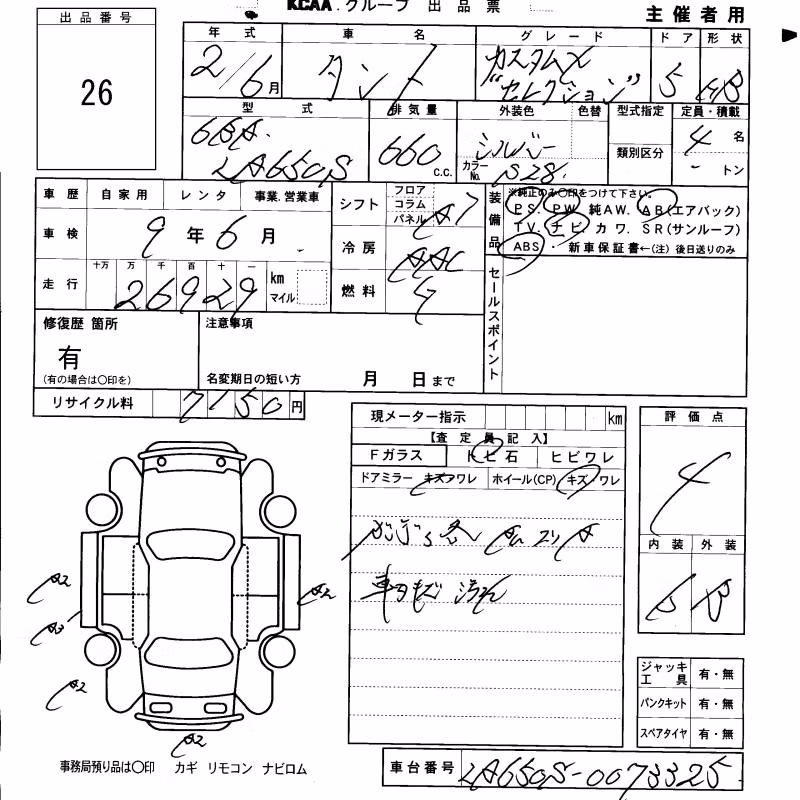 KCAA.グループ 出品票
主催者用
出品番号
26
年式 車名 グレード ドア 形状
2/6月 タント カスタムX "セレクション" 5 HB
型式 排気量 外装色 色替 型式指定 定員・積載
6BA- LA650S 660 c.c. シルバー カラーNo. S28 類別区分 4名 - トン
車歴 自家用 レンタ 事業.営業車
車検 9年6月
走行 十万 万 千 百 十 一 26929 km マイル
シフト フロア コラム パネル A7
冷房 AAC
燃料 G
装備品 ※純正のみ○印をつけて下さい。
PS. PW. 純AW. AB(エアバック)
TV. ナビ カワ. SR(サンルーフ)
ABS・ 新車保証書←(注) 後日送りのみ
セールスポイント
修復歴 箇所
有
(有の場合は○印を)
注意事項
名変期日の短い方 月 日まで
リサイクル料 7150円
現メーター指示 km
【査定員記入】
Fガラス トビ石 ヒビワレ
ドアミラー キズワレ ホイール(CP) キズ・ワレ
車内 汚れ
評価点
4
内装 外装
B B
A2 A2
A2
A2
ジャッキ工具 有・無
パンクキット 有・無
スペアタイヤ 有・無
事務局預り品は○印 カギ リモコン ナビロム
車台番号 LA650S-0073325